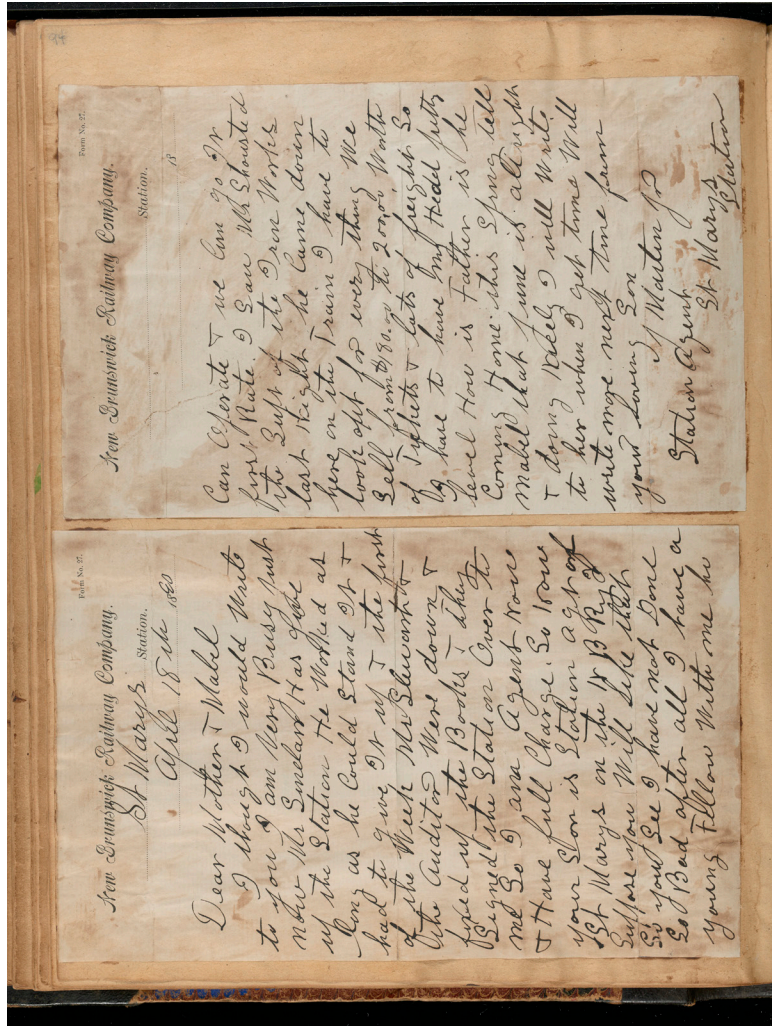 Form No. 27.
New Brunswick Railway Company.
St Marys Station.
April 18th 1880
Dear Mother & Mabel
I though I would Write
to you I am Very Busy Just
now Mr Sinclair Has give
up the Station He Worked as
long as he Could Stand It &
had to give It up & the first
of the Week Mr Stewart &
the Auditor Were down &
fixed up the Books & they
Signed the Station Over to
me So I am Agent now
& Have full Charge. So now
your Son is Station agt of
St Marys on the N B Ry I
Suppose you Will Like that
So you See I have not Done
So Bad after all I have a
young Fellow With me he
Form No. 27.
New Brunswick Railway Company.
Station.
18
Can Operate & we Can go In
first Rate. I Saw Mr
the Supt of the Iron Works
last Night he Came down
here on the Train I have to
look out for every thing We
Sell from $190.00 to 200.00 Worth
of Tickets & lots of freight So
I have to have my Hed
level How is Father is he
Coming Home this Spring tell
Mabel that June is all right
& doing Nicely I will Write
to her when I get time Will
write more next time from
your Loving Son
Martin Jr
Station Agent
St Marys
Station